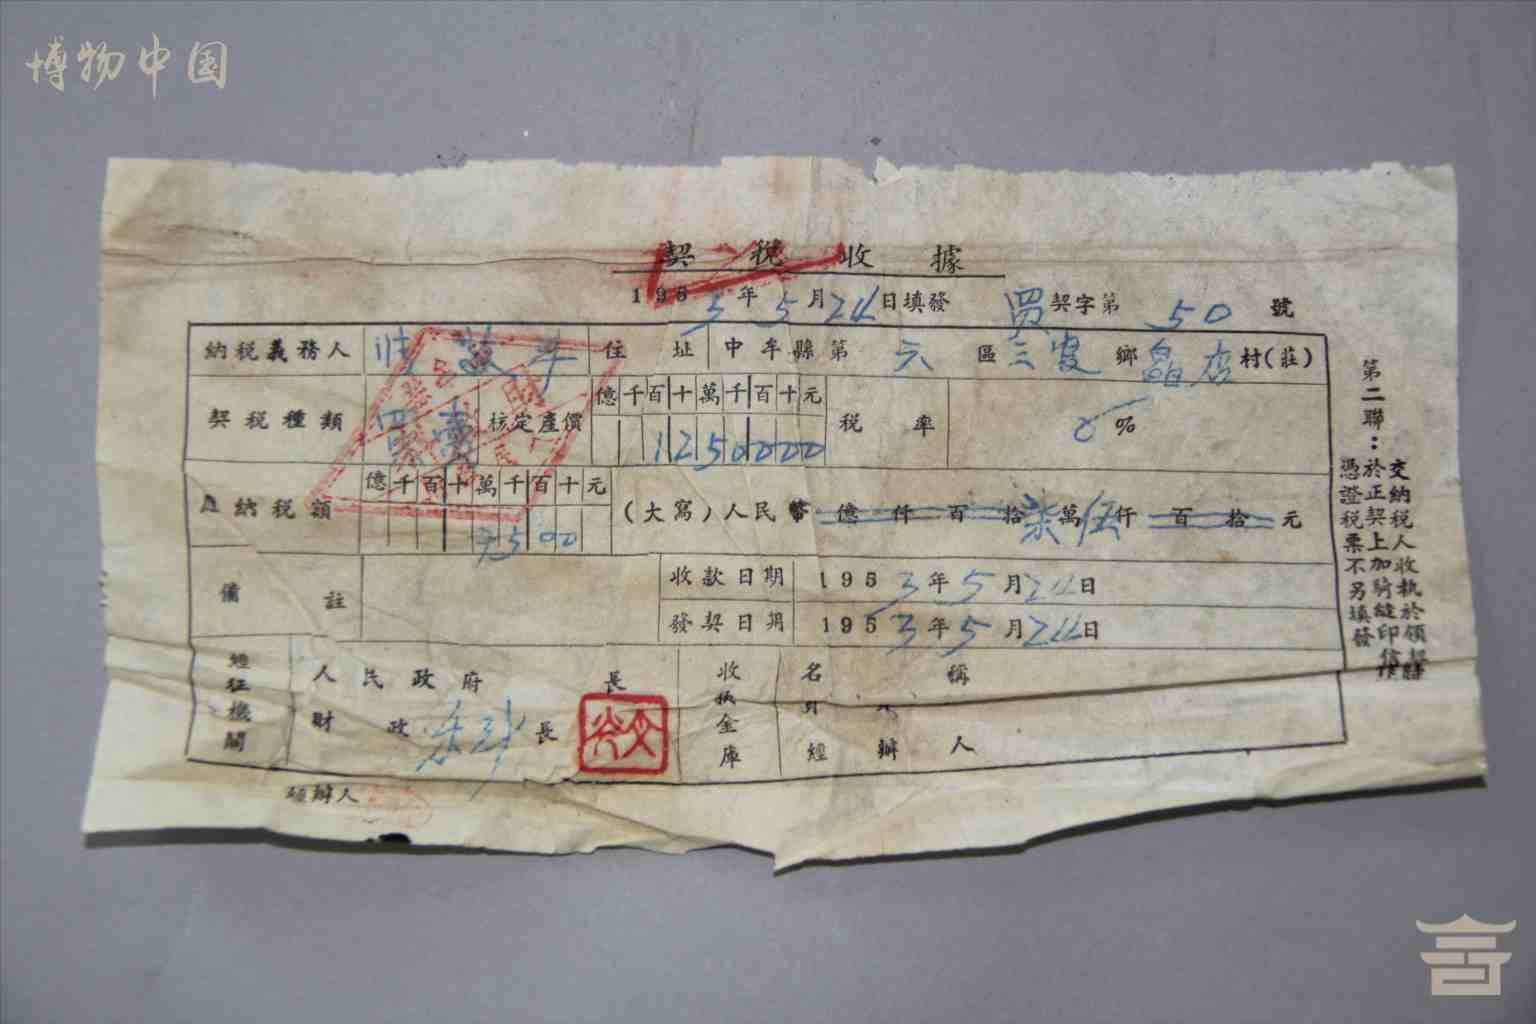 博物中国
契税收據
1953年5月24日填發 買契字第50號
納税義務人 住址 中牟縣第六區三 鄉 店村(莊)
億千百十萬千百十元
契税種類 買 核定產價 1250000 税率 6%
億千百十萬千百十元
納税額 7500 (大寫)人民幣 億仟百拾柒萬伍仟百拾元
備註 收款日期 1953年5月24日
發契日期 1953年5月24日
經征機關 人民政府 長 收执金庫 名稱
財政 長 經辦人
辦人
第二聯：交納税人收執於領
於正契上加騎縫印
憑證税票不另填發